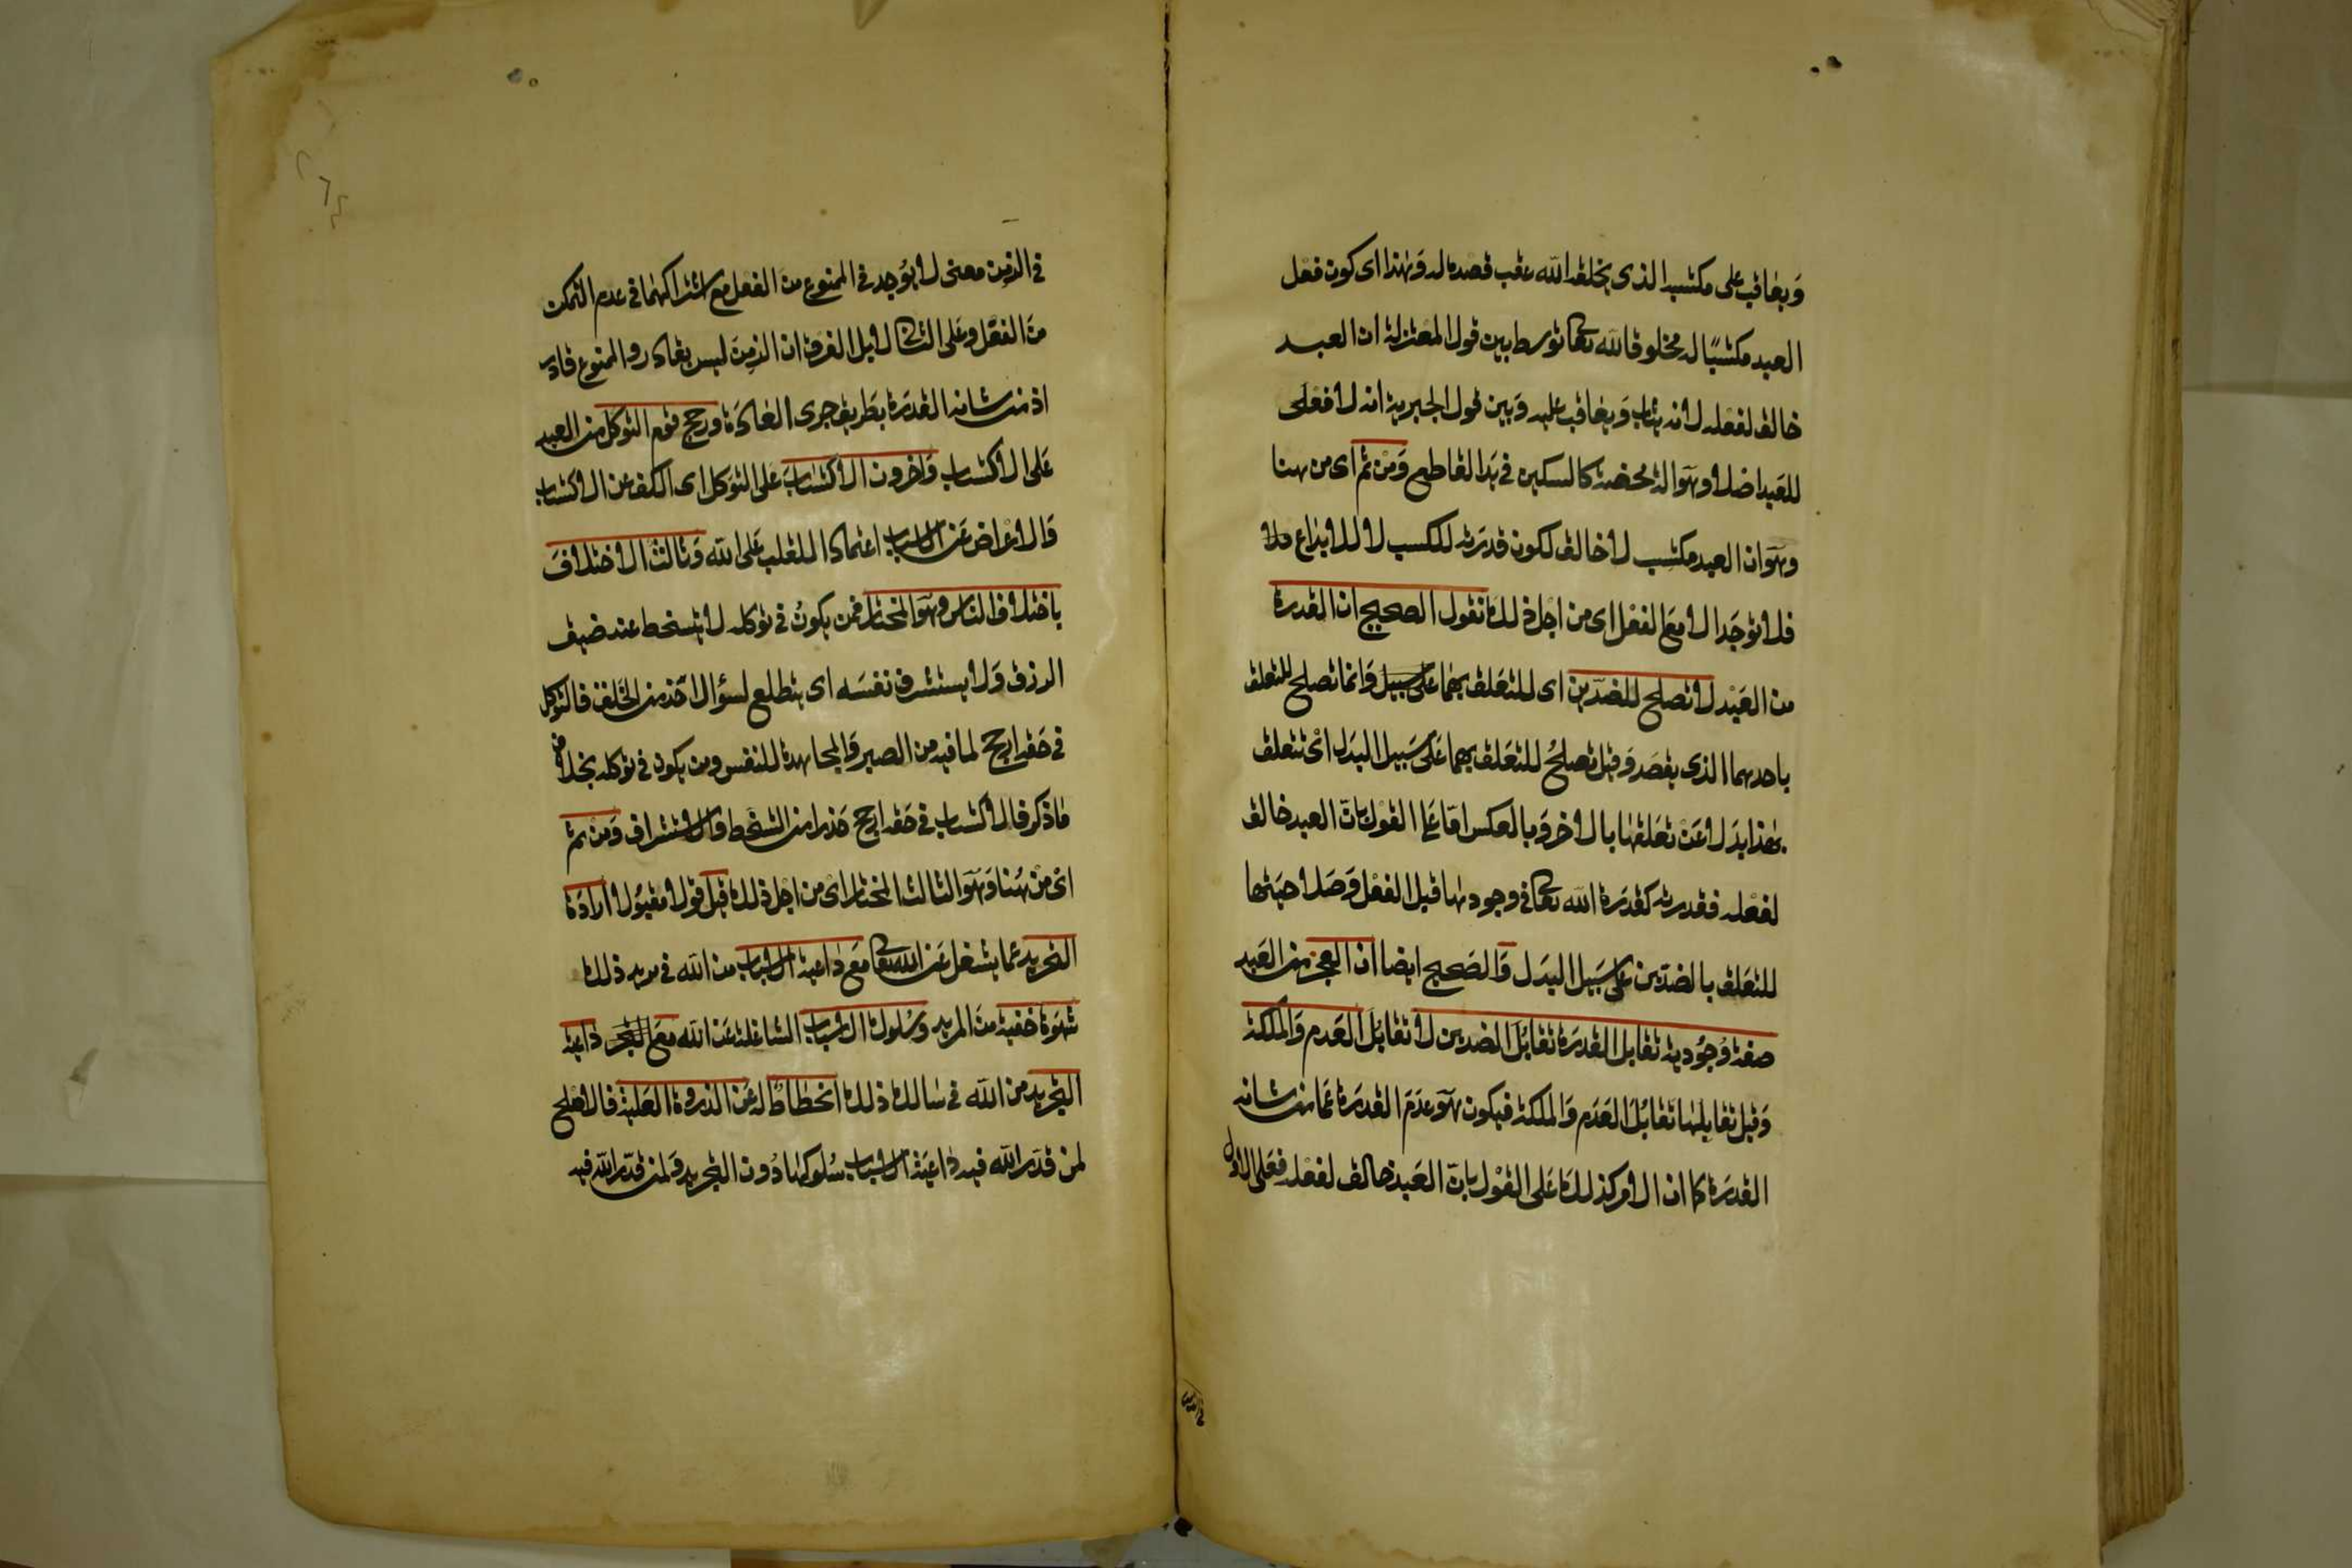 ويعاقب على مكتسبه الذى يخلقه الله عقب قصده له وهذا اى كون فعل
العبد مكتسبًا له مخلوقا لله تعالى توسط بين قول المعتزلة ان العبد
خالق لفعله لانه يثاب ويعاقب عليه وبين قول الجبرية انه لا فعل
للعبد اصلا وهو الة محضة كالسكين فى يد القاطع ومن ثم اى من هنا
وهو ان العبد مكتسب لا خالق لكون قدرته للكسب لا للابداع
فلا توجد الا مع الفعل اى من اجل ذلك نقول الصحيح ان القدرة
من العبد لا تصلح للضدين اى للتعلق بهما على سبيل وانما تصلح للتعلق
باحدهما الذى يقصد وقيل تصلح للتعلق بهما على سبيل البدل اى تتعلق
بهذا بدلا عن تعلقها بالاخر وبالعكس اما على القول بان العبد خالق
لفعله فقدرته كقدرة الله تعالى فى وجودها قبل الفعل وصلاحيتها
للتعلق بالضدين على سبيل البدل والصحيح ايضا ان العجز من العبد
صفة وجودية تقابل القدرة تقابل الضدين لا تقابل العدم والملكة
وقيل تقابلها تقابل العدم والملكة فيكون هو عدم القدرة عما من شانه
القدرة كما ان الامر كذلك على القول بان العبد خالق لفعله فعلى الاول
فى الزمن معنى لا يوجد فى الممنوع من الفعل مع اشتراكهما فى عدم التمكن
من الفعل وعلى الثانى لا بل الفرق ان الزمن ليس بقادر والممنوع قادر
اذ من شانه القدرة بطريق جرى العادة ورجح قوم التوكل من العبد
على الاكتساب واخرون الاكتساب على التوكل اى الكف عن الاكتساب
والاعراض عن الاسباب اعتمادا للقلب على الله وثالث الاختلاف
باختلاف الناس وهو المختار فمن يكون فى توكله لا يتسخط عند ضيق
الرزق ولا يستشرف نفسه اى يتطلع لسؤال احد من الخلق فالتوكل
فى حقه ارجح لما فيه من الصبر والمجاهدة للنفس ومن يكون فى توكله بخلاف
ما ذكر فالاكتساب فى حقه ارجح حذرا من التسخط والاستشراف ومن ثم
اى من هنا وهو الثالث المختار اى من اجل ذلك قيل قولا مقبولا ارادة
التجريد عما يشغل عن الله تعالى مع داعية الاسباب من الله فى مريد ذلك
شهوة خفية من المريد وسلوك الاسباب الشاغلة عن الله مع داعية
التجريد من الله فى سالك ذلك انحطاط له عن الذروة العلية فالاصلح
لمن قدر الله فيه داعية الاسباب سلوكها دون التجريد ولمن قدر الله فيه